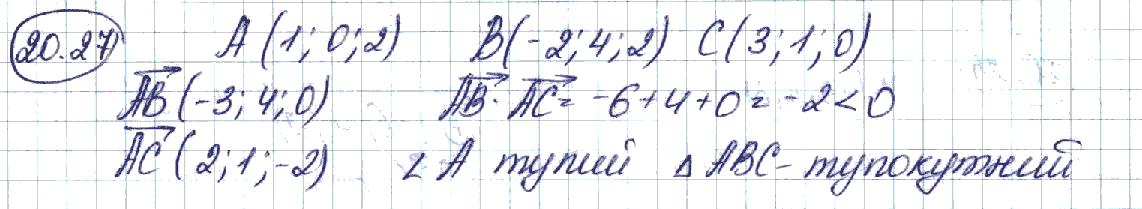 20.27 A (1; 0; 2) B(-2; 4; 2) C(3; 1; 0)
AB (-3; 4; 0) AB · AC = -6+4+0 = -2<0
AC (2; 1; -2) ∠A тупий △ABC - тупокутний